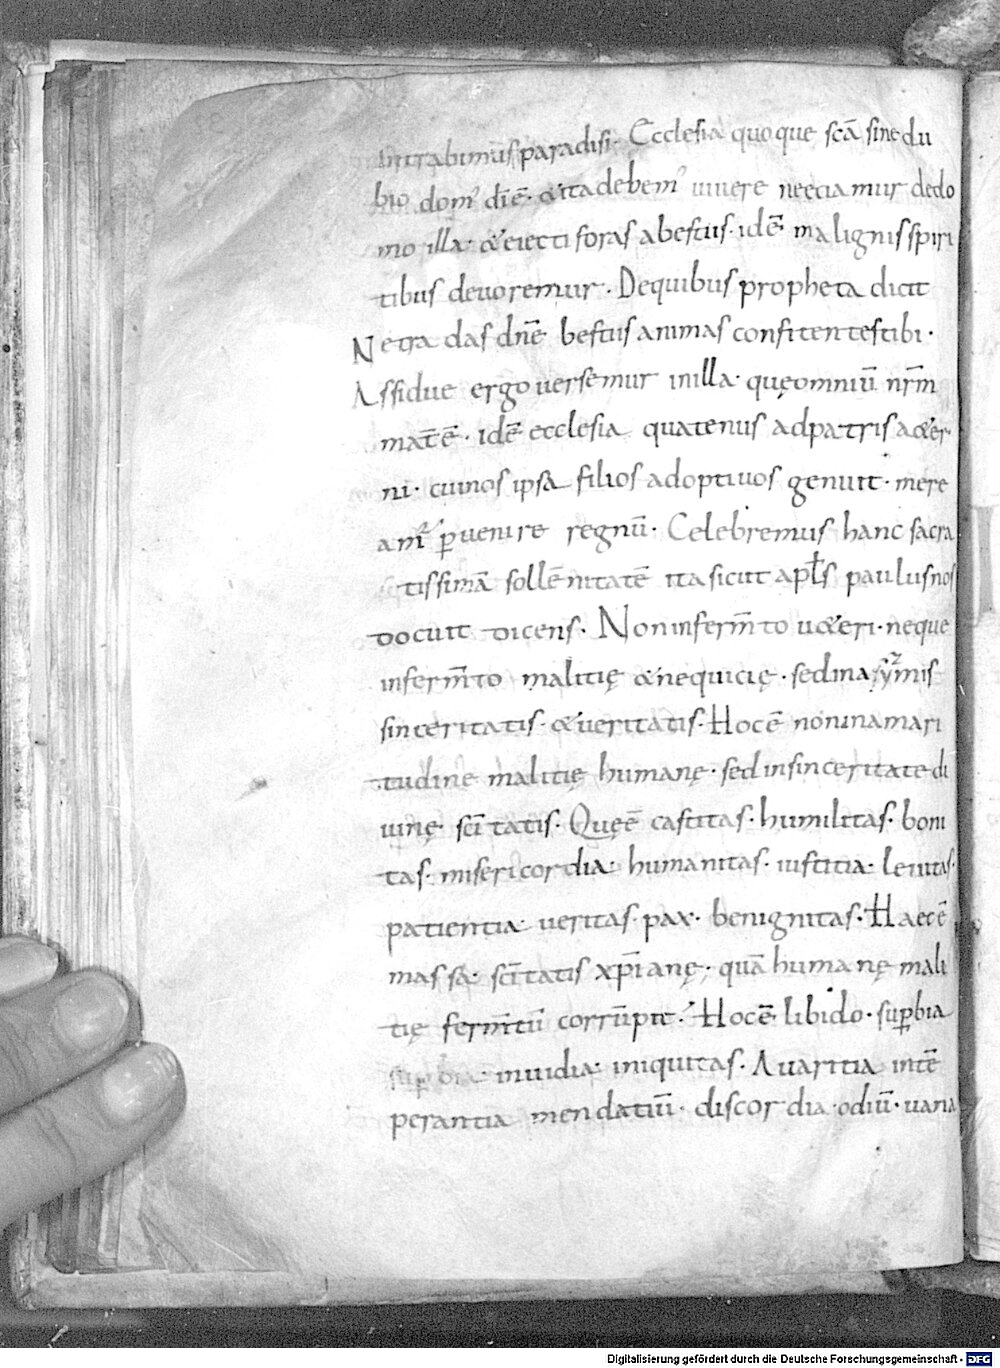 Intrabimus paradisi. Ecclesia quoque sc̄a sine du
bio dom' dīē. & ita debem' uiuere ne eiciamur de do
mo illa. & eiecti foras a bestiis. idē malignis spiri
tibus deuoremur. De quibus propheta dicit
Ne tradas dn̄e bestiis animas confitentes tibi.
Assidue ergo uersemur in illa. quę omniū nr̄m
mat̄ ē. idē ecclesia quatenus ad patris aeter
ni. cui nos ipsa filios adoptiuos genuit. mere
am̄ p̱uenire regnū. Celebremus hanc sacra
tissimā sollēnitatē ita sicut apłs paulus nos
docuit dicens. Non in ferm̄to ueteri. neque
in ferm̄to malitię & nequicię. sed in azymis
sinceritatis. & ueritatis. Hoc ē non in amari
tudine malitię humanę. sed in sinceritate di
uinę sc̄itatis. Quę ē castitas. humilitas. boni
tas. misericordia. humanitas. iustitia. leuitas.
patientia. ueritas. pax. benignitas. Haec ē
massa sc̄itatis xp̄ianę. quā humanę mali
tię ferm̄tū corrūpit. Hoc ē libido. sup̱bia
sup̱bia. inuidia. iniquitas. Auaritia intē
perantia mendatiū. discordia. odiū. uana